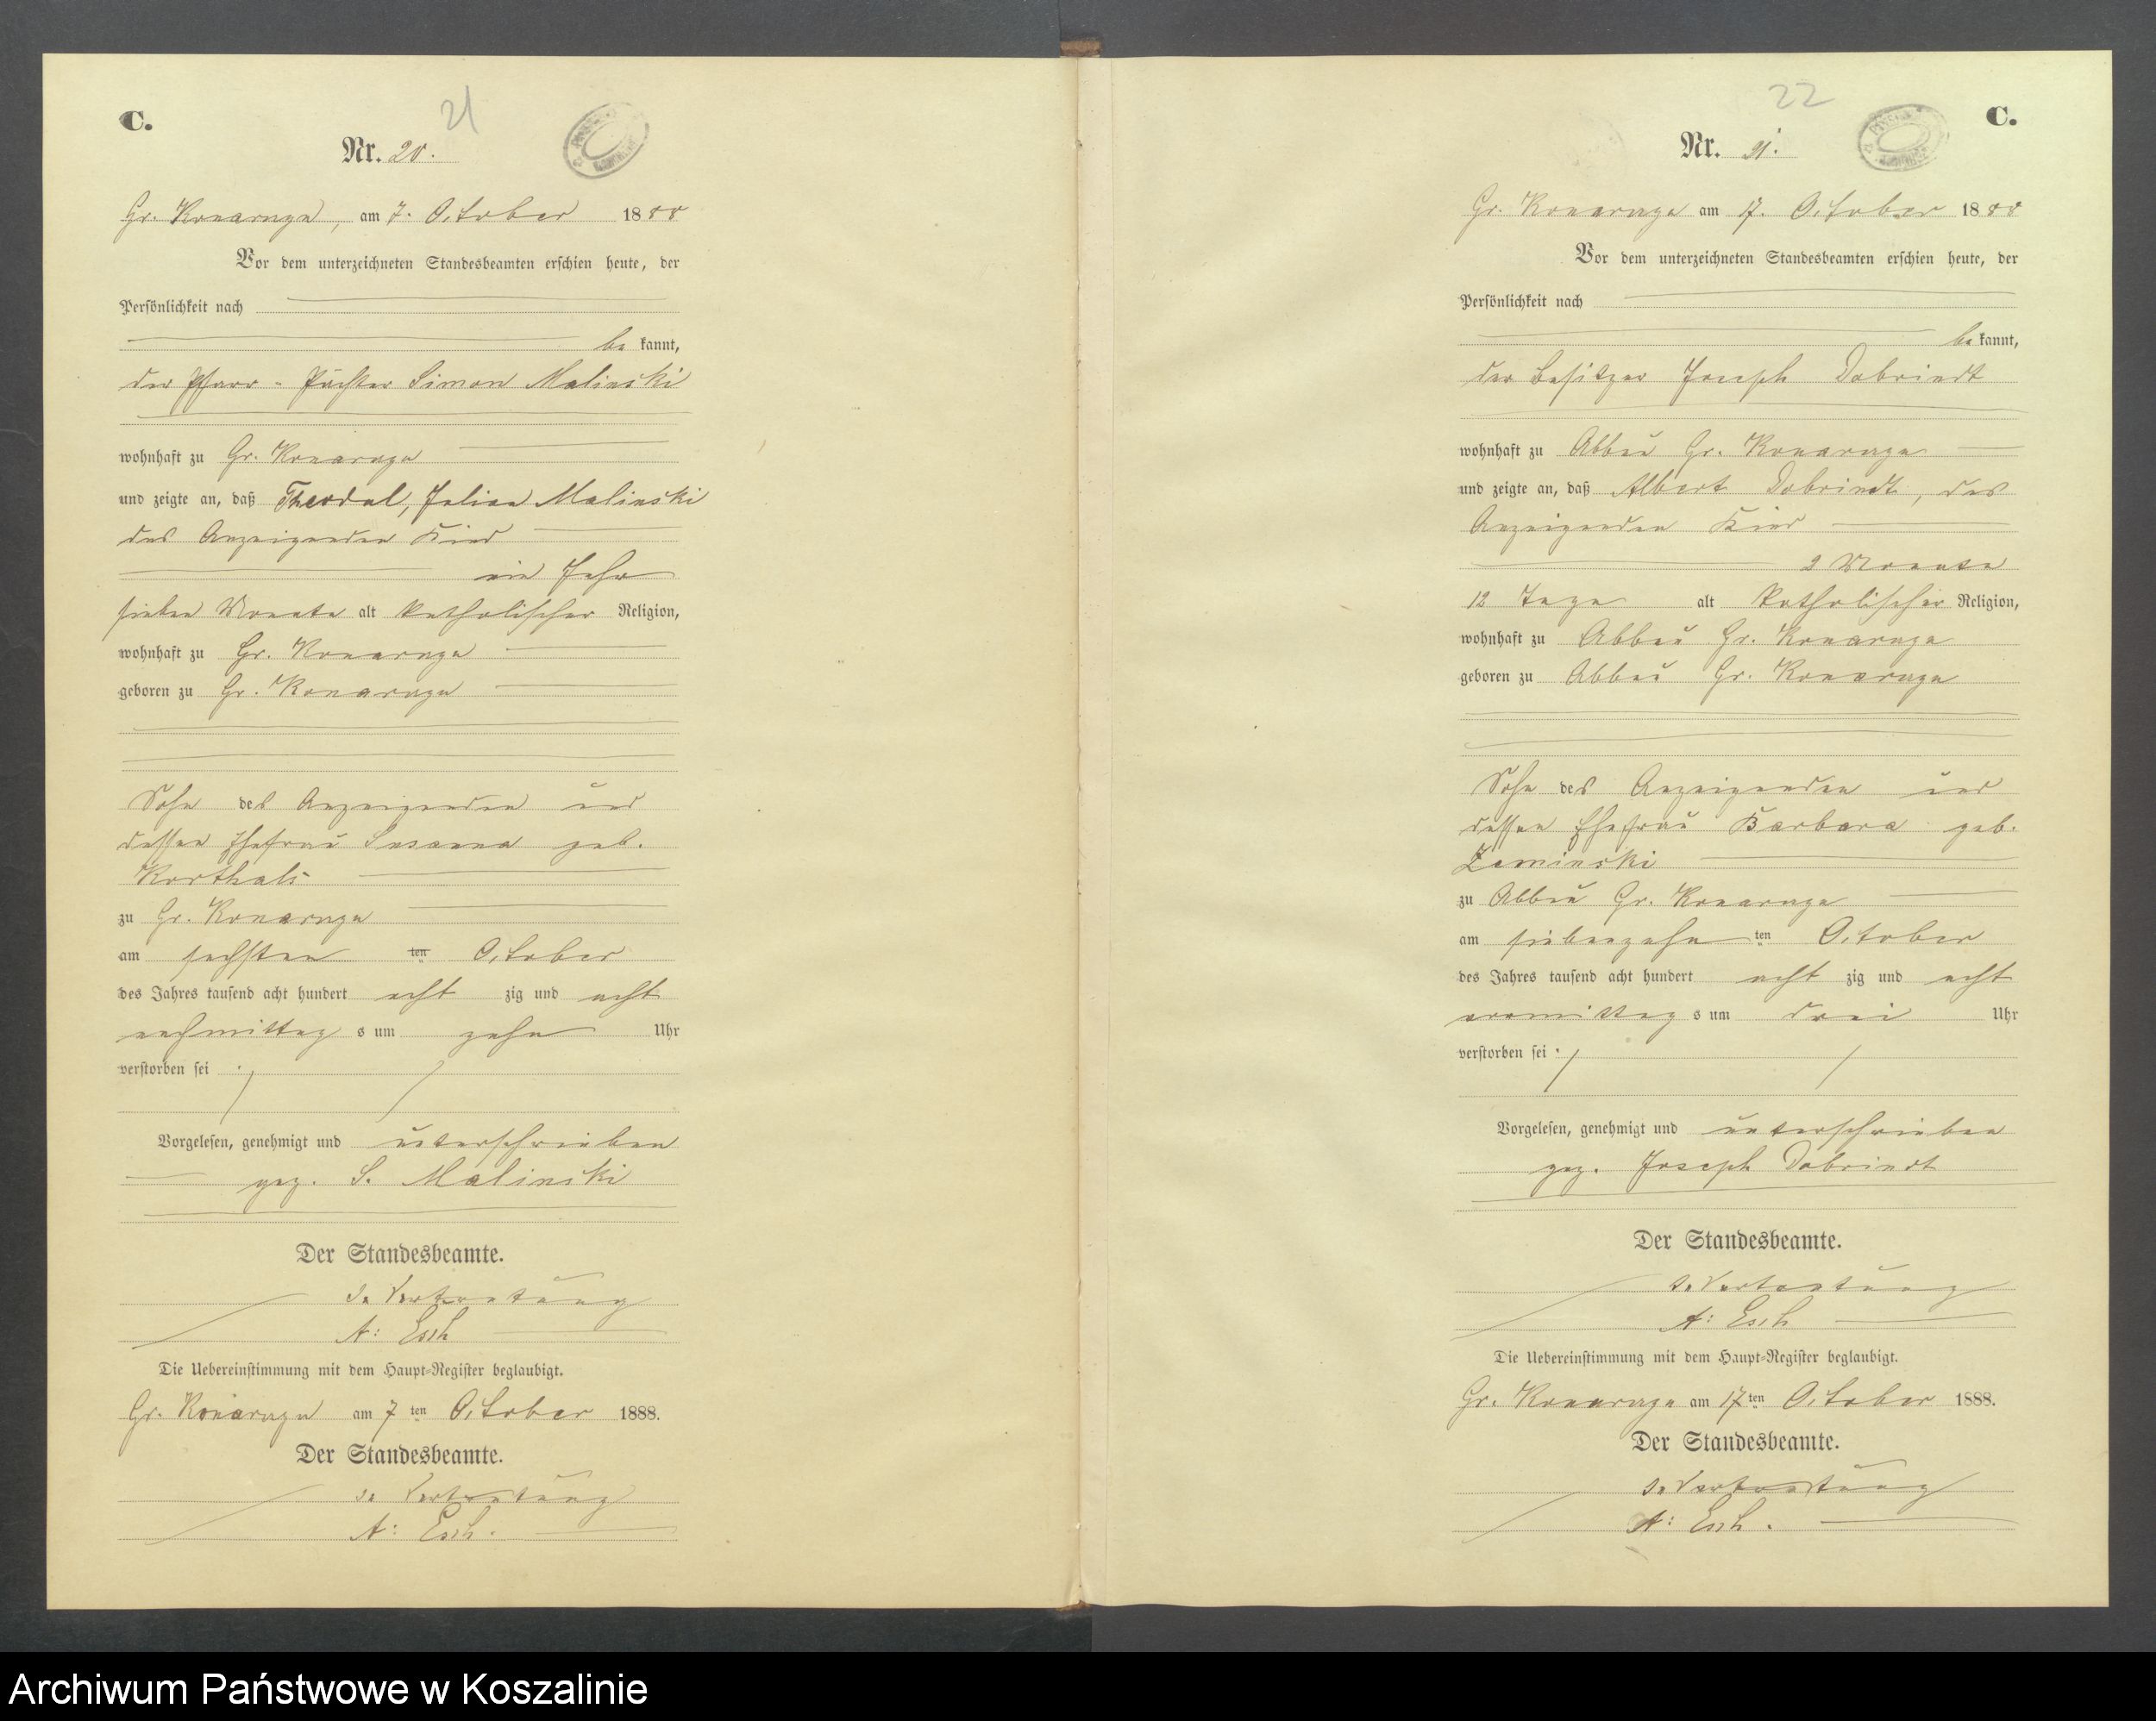 C.
21
Nr. 20.
Gr. Konarzyn, am 7. October 1888
Vor dem unterzeichneten Standesbeamten erschien heute, der
Persönlichkeit nach
be kannt,
der Pfarr-Pächter Simon Malinski
wohnhaft zu Gr. Konarzyn
und zeigte an, daß Theodal, Julian Malinski
des Anzeigenden Kind
ein Jahr
sieben Monate alt katholischer Religion,
wohnhaft zu Gr. Konarzyn
geboren zu Gr. Konarzyn
Sohn des Anzeigenden und
dessen Ehefrau Susanna geb.
Korthals
zu Gr. Konarzyn
am sechsten ten October
des Jahres tausend acht hundert acht zig und acht
nachmittag s um zehn Uhr
verstorben sei ./. /
Vorgelesen, genehmigt und unterschrieben
gez. S. Malinski
Der Standesbeamte.
In Vertretung
A: Esch
Die Uebereinstimmung mit dem Haupt-Register beglaubigt.
Gr. Konarzyn am 7 ten October 1888.
Der Standesbeamte.
In Vertretung
A: Esch.
22
C.
Nr. 21.
Gr. Konarzyn am 17. October 1888
Vor dem unterzeichneten Standesbeamten erschien heute, der
Persönlichkeit nach
be kannt,
der Besitzer Joseph Dobrindt
wohnhaft zu Abbau Gr. Konarzyn
und zeigte an, daß Albert Dobrindt, des
Anzeigenden Kind
2 Monate
12 Tage alt katholischer Religion,
wohnhaft zu Abbau Gr. Konarzyn
geboren zu Abbau Gr. Konarzyn
Sohn des Anzeigenden und
dessen Ehefrau Barbara geb.
Zeminski
zu Abbau Gr. Konarzyn
am siebenzehn ten October
des Jahres tausend acht hundert acht zig und acht
vormittag s um drei Uhr
verstorben sei ./. /
Vorgelesen, genehmigt und unterschrieben
gez. Joseph Dobrindt
Der Standesbeamte.
In Vertretung
A: Esch
Die Uebereinstimmung mit dem Haupt-Register beglaubigt.
Gr. Konarzyn am 17 ten October 1888.
Der Standesbeamte.
In Vertretung
A: Esch.
Archiwum Państwowe w Koszalinie